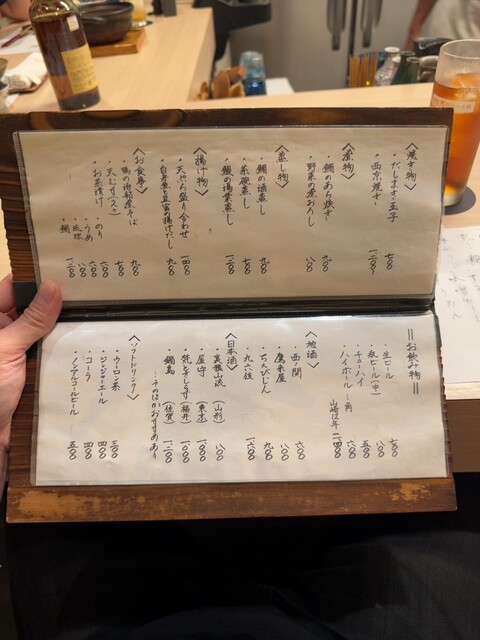 〈焼き物〉
・だしまき玉子 七〇〇
・西京焼き 一二〇〇
〈煮物〉
・鯛のあら炊き 九〇〇
・野菜の煮おろし 八〇〇
〈蒸し物〉
・鯛の酒蒸し 九〇〇
・茶碗蒸し 七〇〇
〈揚げ物〉
・天ぷら盛り合わせ 一四〇〇
九〇〇
〈お食事〉
・お茶漬け
・のり 七〇〇
・うめ 八〇〇
・鯛 一二〇〇
＝お飲み物＝
・生ビール 七〇〇
・瓶ビール(中) 八〇〇
・チューハイ 五〇〇
・ハイボール 角 六〇〇
山崎12年 一四〇〇
〈地酒〉
・西関 六〇〇
・鷹来屋 八〇〇
・ちえびじん 九〇〇
・九六位 一六〇〇
〈日本酒〉
・裏雅山流(山形) 八〇〇
・屋守(東京) 一〇〇〇
(福井) 一〇〇〇
・鍋島(佐賀) 一二〇〇
…そのほかおすすめあり
〈ソフトドリンク〉
・ウーロン茶 三〇〇
・ジンジャーエール 四〇〇
・コーラ 四〇〇
・ノンアルコールビール 五〇〇